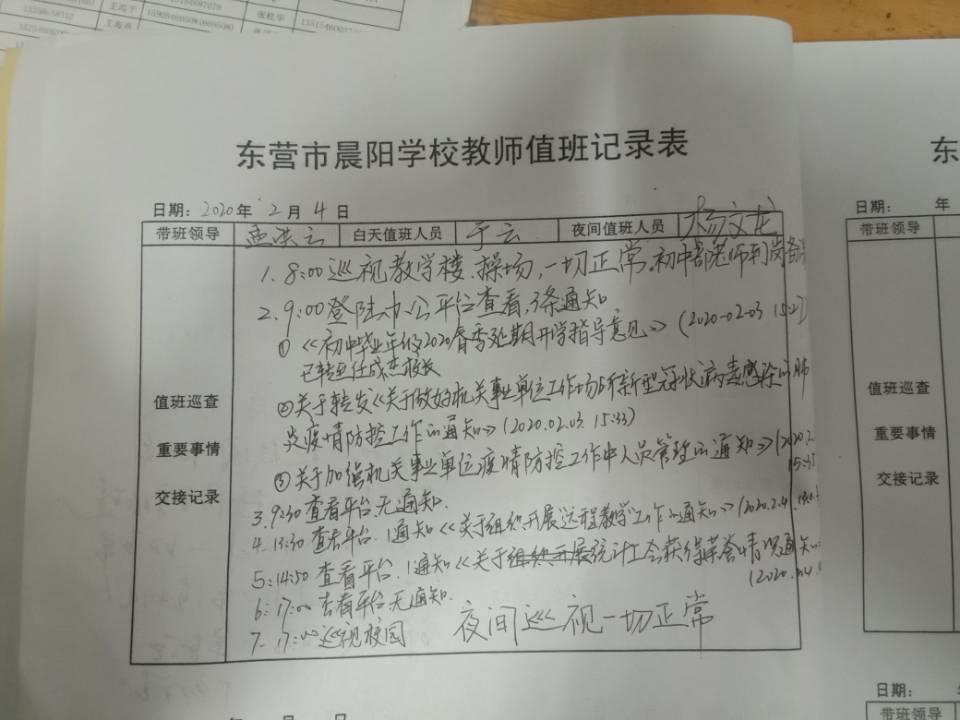 东营市晨阳学校教师值班记录表
东
日期：2020年 2 月 4 日
日期： 年
带班领导 白天值班人员 于云 夜间值班人员 杨文龙
带班领导
1. 8:00 巡视教学楼、操场，一切正常。初中部老师到岗备
2. 9:00 登陆办公平台查看，3条通知
①《初中毕业年级2020春季延期开学指导意见》(2020-02-03 15:27)
已转任成杰校长
②关于转发《关于做好机关事业单位工作场所新型冠状病毒感染的肺
炎疫情防控工作的通知》(2020.02.03. 15:33)
③关于加强机关事业单位疫情防控工作中人员管理的通知》(2020.2
15:45
3. 9:30 查看平台无通知.
4. 13:30 查看平台. 1通知《关于组织开展远程教学工作的通知》(2020.2.4.
5. 14:50 查看平台. 1通知《关于组织开展统计工会获得荣誉情况通知
(2020.
6. 17:00 查看平台无通知.
7. 17:00 巡视校园 夜间巡视一切正常
值班巡查
重要事情
交接记录
值班巡查
重要事情
交接记录
日期：
带班领导
年 月 日